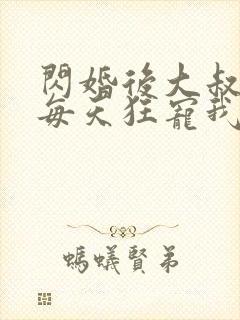 閃婚後大叔
每天狂寵我
螞蟻賢弟